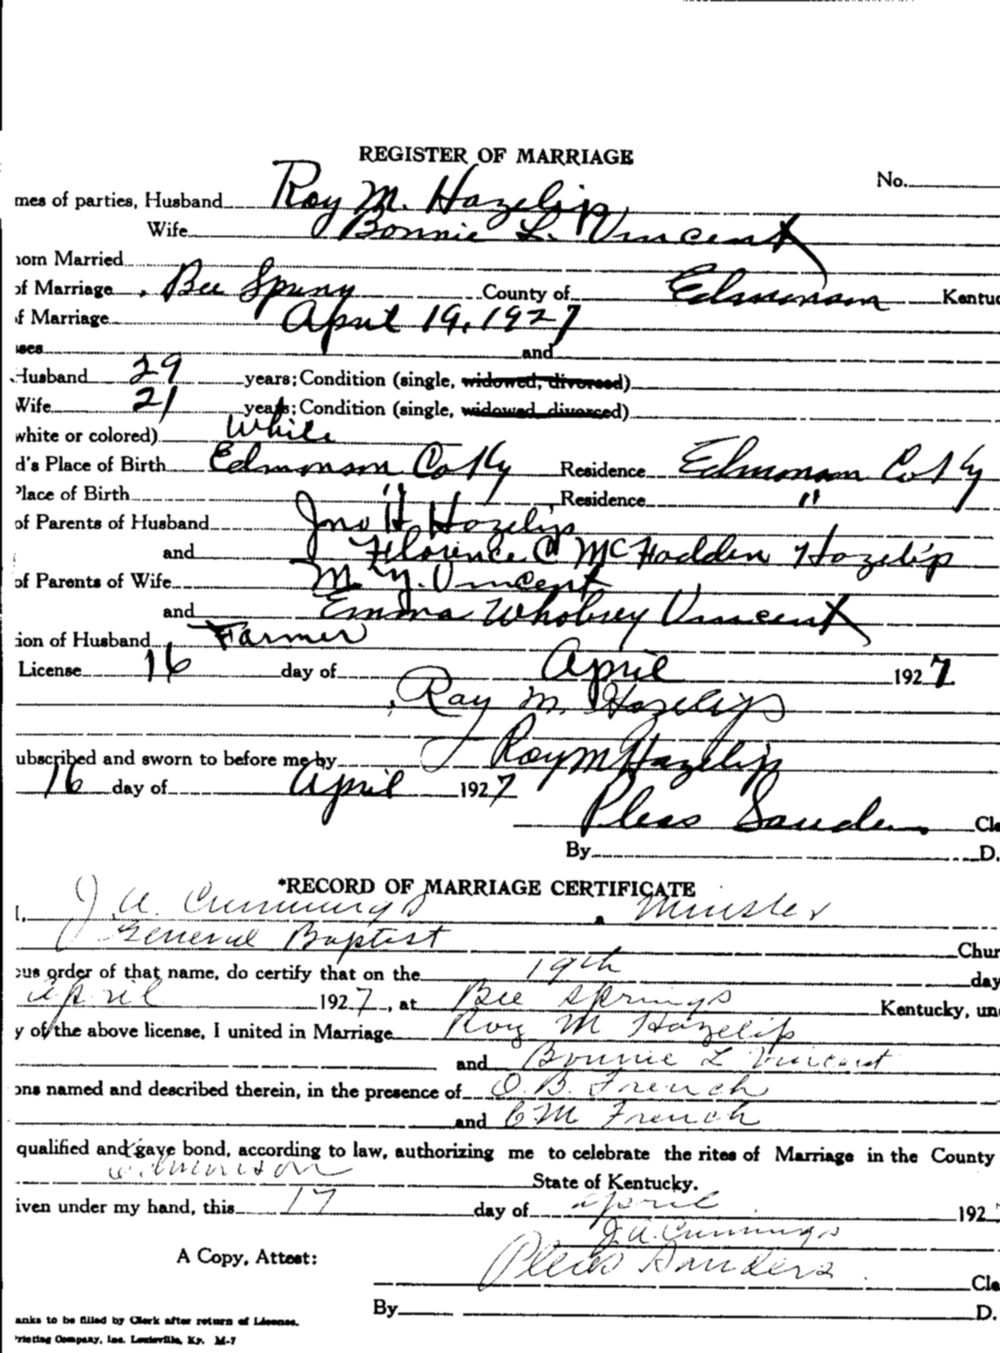 REGISTER OF MARRIAGE
No.
mes of parties, Husband Roy M. Hazelip
Wife Bonnie L. Vincent
hom Married
of Marriage Bee Spring County of Edmonson Kentuc
of Marriage April 19, 1927
ses and
Husband 29 years; Condition (single, widowed, divorced)
Wife 21 years; Condition (single, widowed, divorced)
white or colored) White
d's Place of Birth Edmonson Co Ky Residence Edmonson Co Ky
Place of Birth " Residence "
of Parents of Husband Jno H. Hazelip
and Florence C McFadden Hazelip
of Parents of Wife M. Y. Vincent
and Emma Whobrey Vincent
ion of Husband Farmer
License 16 day of April 1927.
Roy M. Hazelip
ubscribed and sworn to before me by Roy M Hazelip
16 day of April 1927
Pleas Sanders Cle
By D.
*RECORD OF MARRIAGE CERTIFICATE
I, J. A. Cummings a Minister
General Baptist Chur
ous order of that name, do certify that on the 19th day
April 1927, at Bee Springs Kentucky, un
y of the above license, I united in Marriage Roy M Hazelip
and Bonnie L Vincent
ons named and described therein, in the presence of O. B. French
and C M French
qualified and gave bond, according to law, authorizing me to celebrate the rites of Marriage in the County
Edmonson State of Kentucky.
iven under my hand, this 17 day of April 192
J. A. Cummings
A Copy, Attest: Pleas Sanders Cle
By D.
anks to be filled by Clerk after return of License.
Printing Company, Inc. Louisville, Ky. M-7